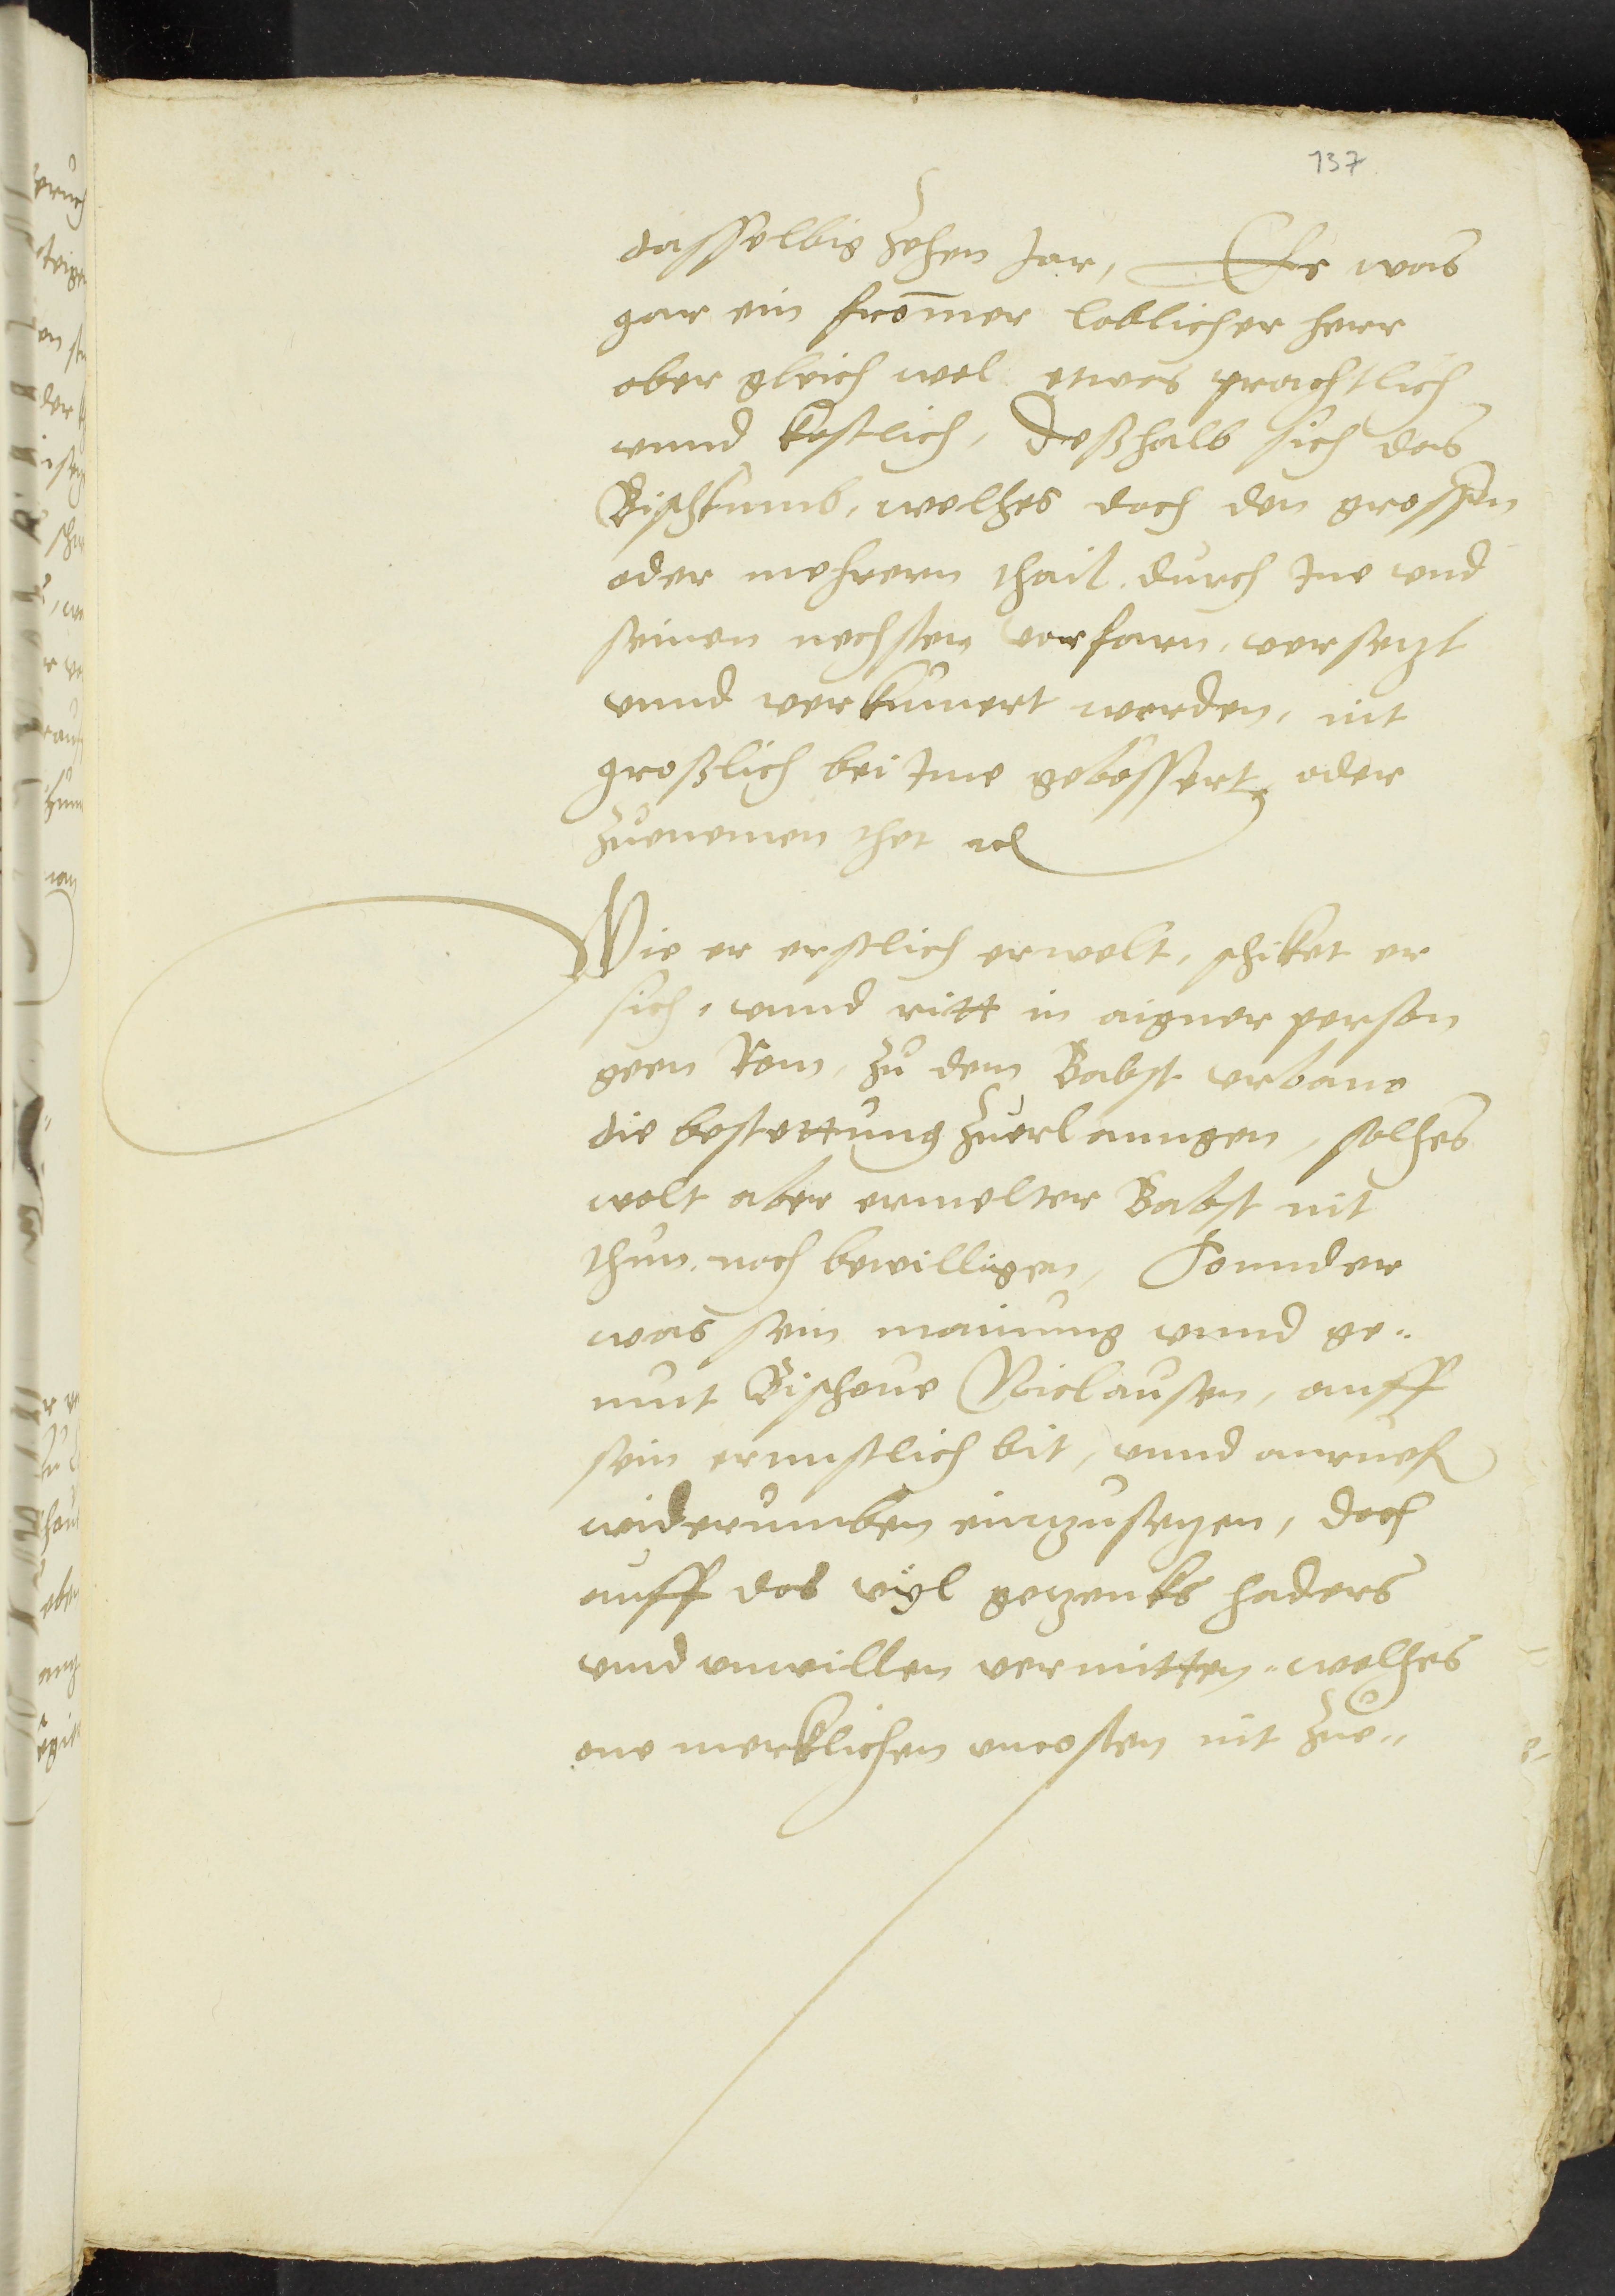 137
dasselbig zehen Jar, Er was
gar ein from̄er loblicher herr
aber gleich wol etwas prachtlich
vnnd kostlich, deßhalb sich das
Bischtumb, welches doch den grossen
oder mehrern thail durch Ine vnd
seinen nechsten vorfarn, versetzt
vnnd verkumert worden, nit
großlich bei Ime gebessert, oder
zuenemen thet etc
Wie er erstlich erwelt, schiket er
sich, vnnd ritt in aigner person
geen Rom, zu dem Babst vrbano
die bestettung zuerlanngen, solches
wolt aber ermelter Babst nit
thun noch bewilligen, Sonnder
was sein mainung vnnd ge-
mut Bischoue Niclausen, auff
sein ernnstlich bit, vnnd anruef
widerumben einzusetzen, doch
auff das vyl gezenks haders
vnnd vnwillen vermitten, welches
one merklichen vncosten nit zue-